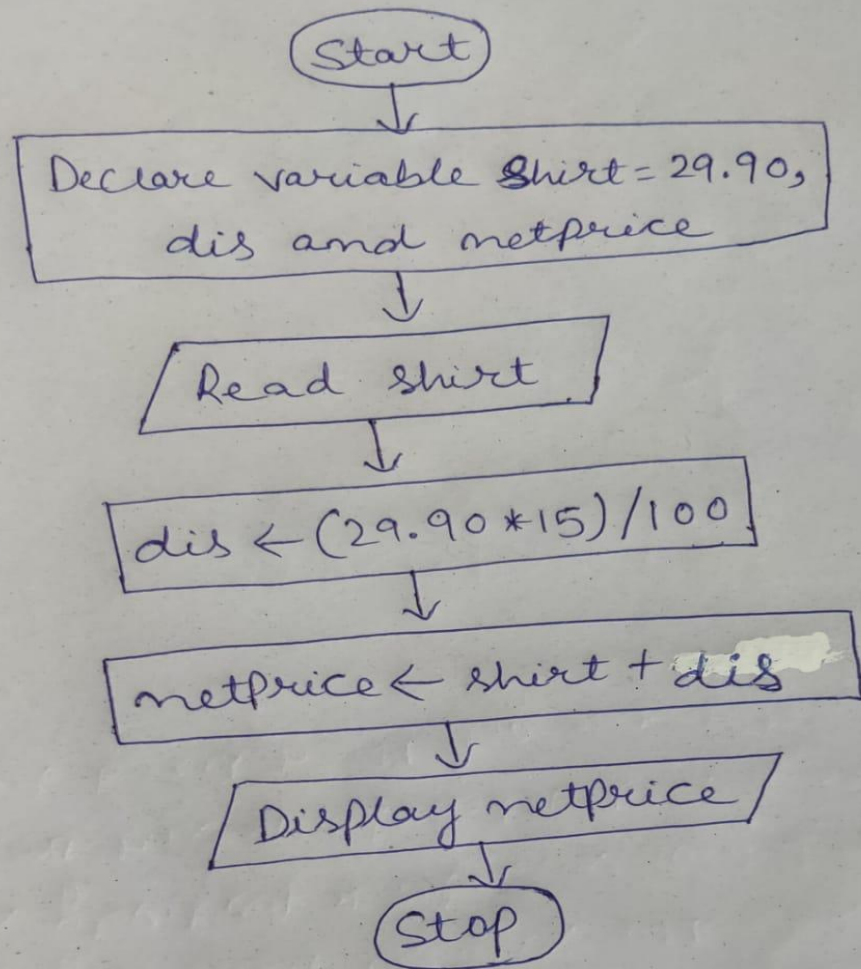 Start
Declare variable shirt = 29.90,
dis and netprice
Read shirt
dis ← (29.90 * 15) / 100
netprice ← shirt + dis
Display netprice
Stop